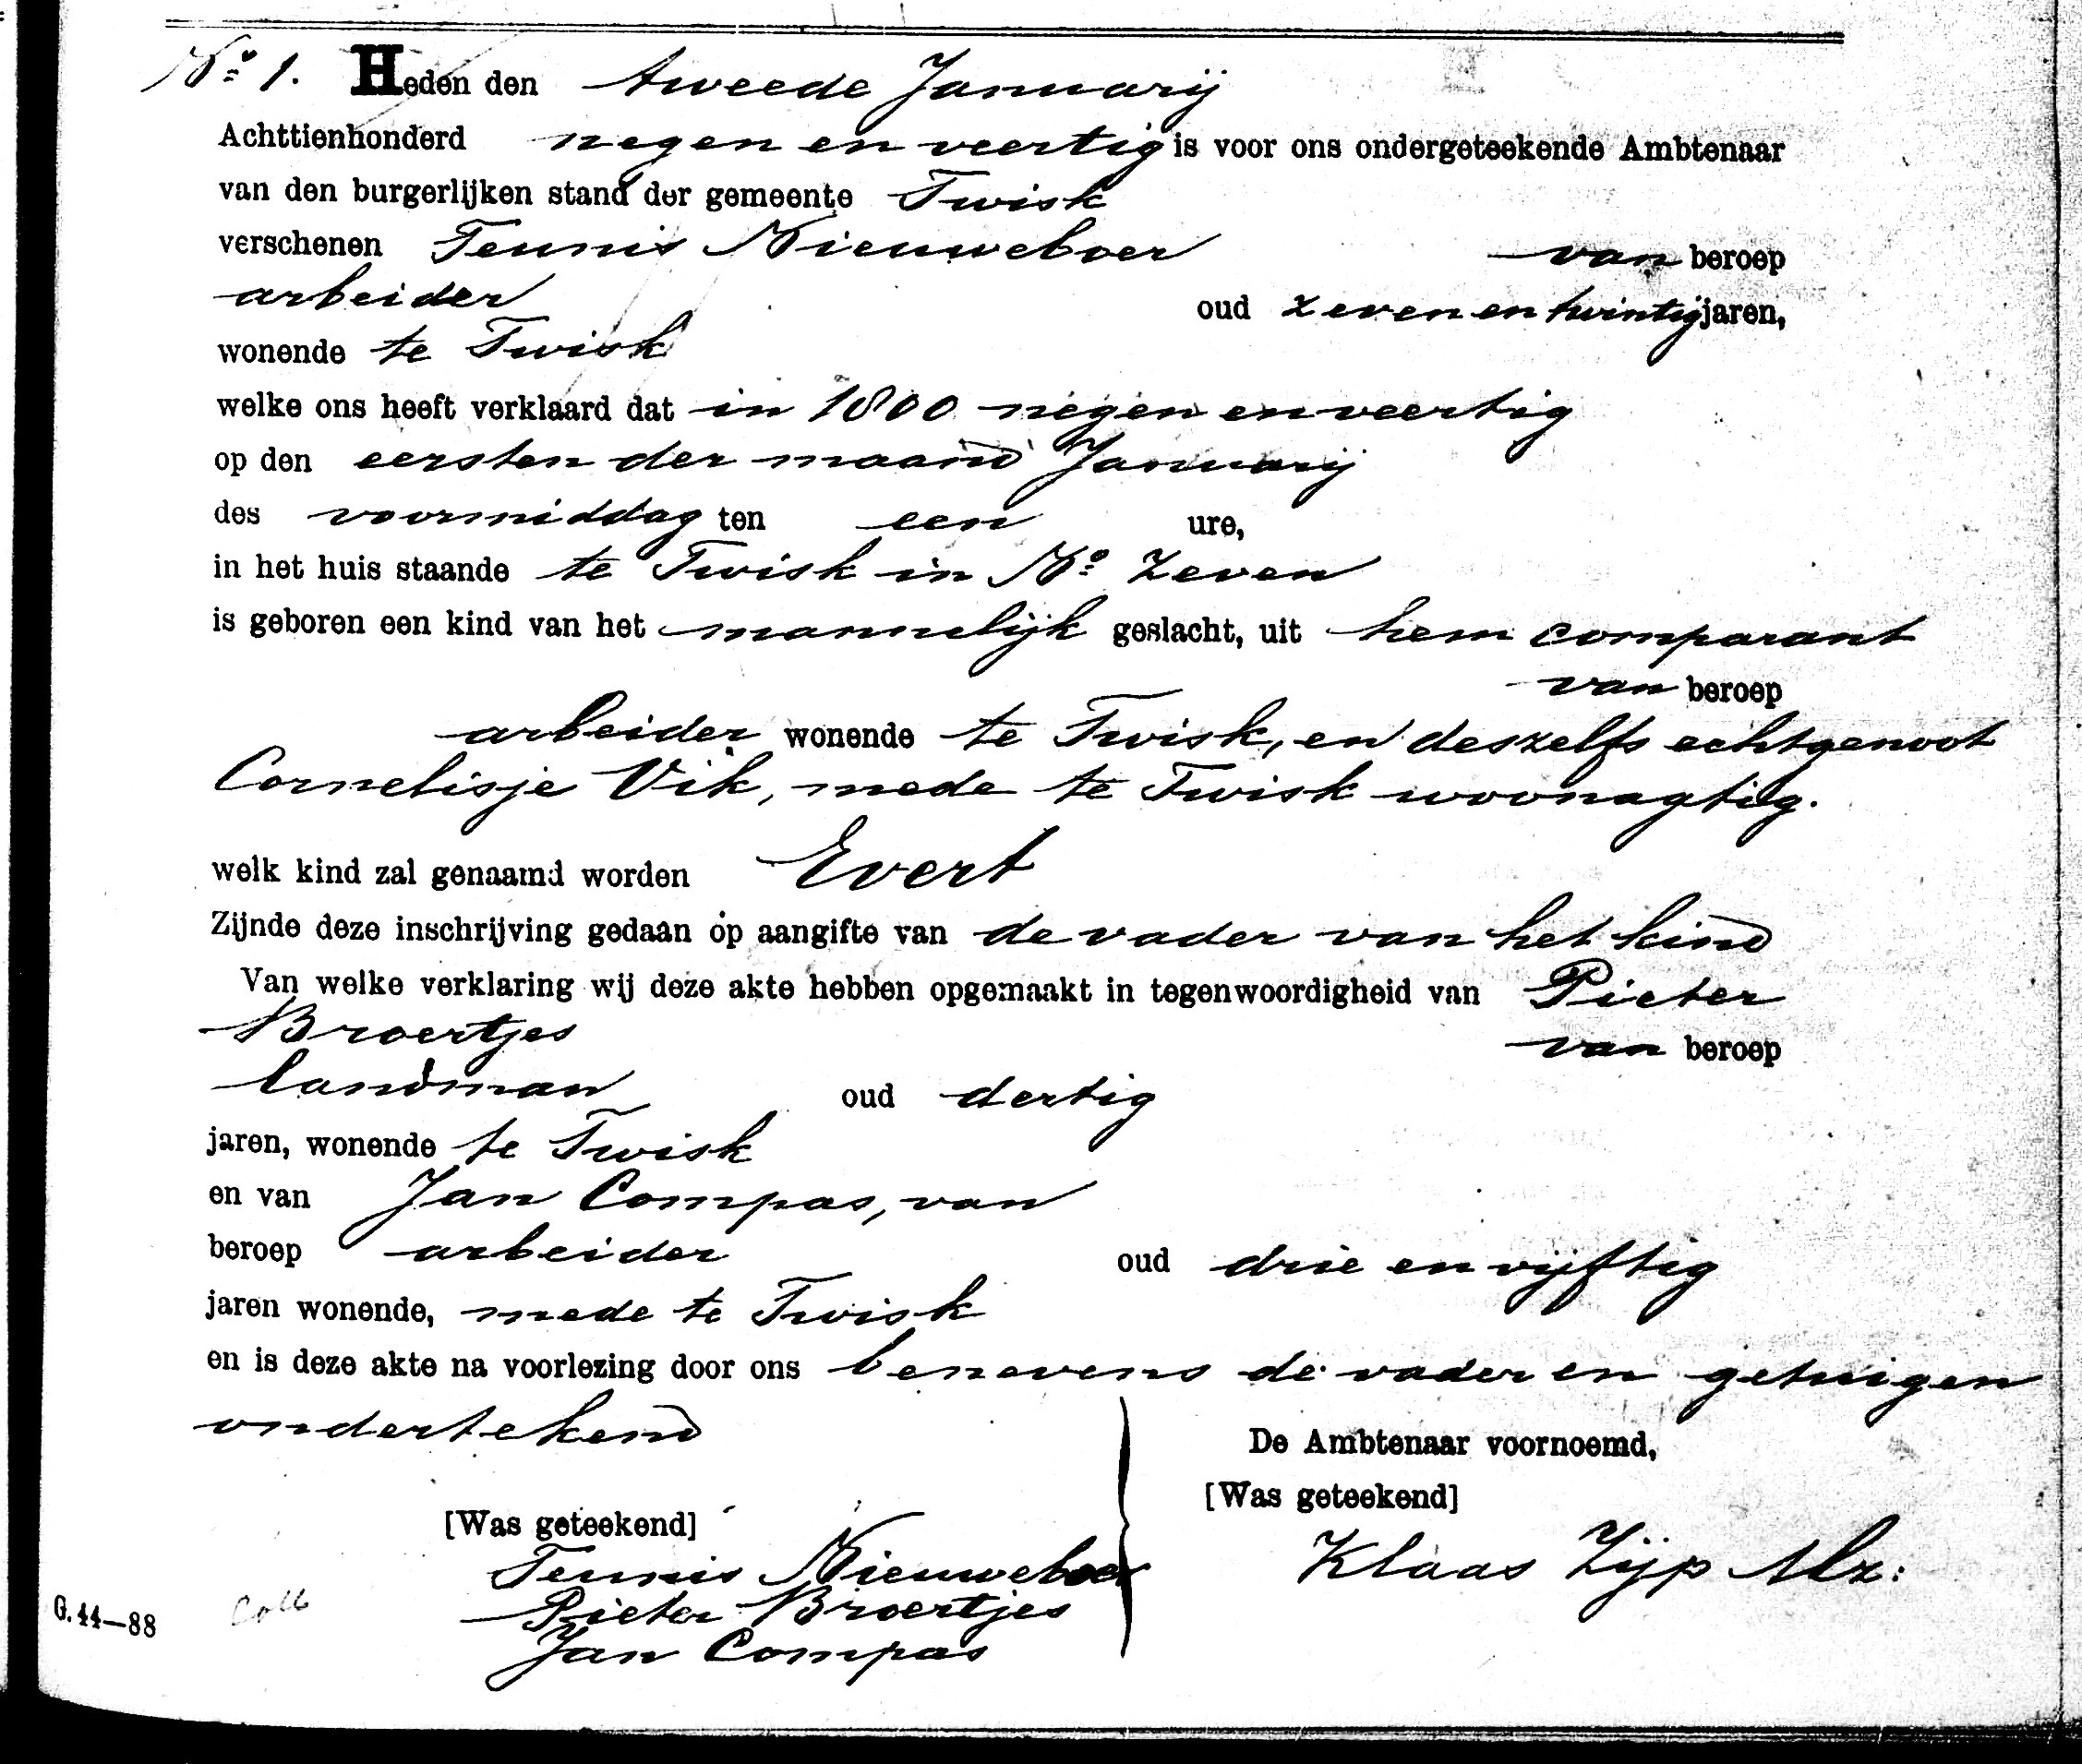 No. 1. Heden den tweede Januarij
Achttienhonderd negen en veertig is voor ons ondergeteekende Ambtenaar
van den burgerlijken stand der gemeente Twisk
verschenen Teunis Nieuweboer van beroep
arbeider oud zeven en twintig jaren,
wonende te Twisk
welke ons heeft verklaard dat in 1800 negen en veertig
op den eersten der maand Januarij
des voormiddag ten een ure,
in het huis staande te Twisk in No. Zeven
is geboren een kind van het mannelijk geslacht, uit hem comparant
van beroep
arbeider wonende te Twisk, en deszelfs echtgenoot
Cornelisje Vik, mede te Twisk woonagtig.
welk kind zal genaamd worden Evert
Zijnde deze inschrijving gedaan op aangifte van de vader van het kind
Van welke verklaring wij deze akte hebben opgemaakt in tegenwoordigheid van Pieter
Broertjes van beroep
landman oud dertig
jaren, wonende te Twisk
en van Jan Compas, van
beroep arbeider oud drie en vijftig
jaren wonende, mede te Twisk
en is deze akte na voorlezing door ons benevens de vader en getuigen
ondertekend
De Ambtenaar voornoemd,
[Was geteekend]
Klaas Zijp Mz:
[Was geteekend]
Teunis Nieuweboer
Pieter Broertjes
Jan Compas
G. 44—88 Coll